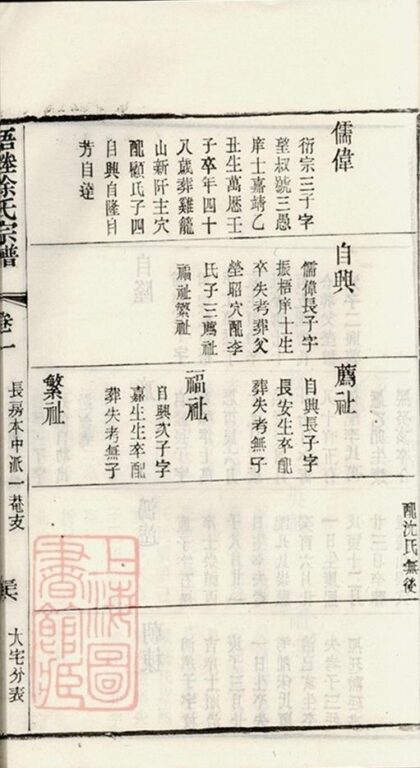 儒偉
衍宗三子字
望叔號三愚
庠士嘉靖乙
丑生萬厯壬
子卒年四十
八歲葬雞籠
山新阡主穴
配顧氏子四
自興自隆自
芳自達
自興
儒偉長子字
振梧庠士生
卒失考葬父
塋昭穴配李
氏子三薦祉
福祉繁祉
薦祉
自興長子字
長安生卒配
葬失考無子
福祉
自興次子字
嘉生生卒配
葬失考無子
繁祉
配沈氏無後
梧塍徐氏宗譜
卷一
長房本中派一菴支
大宅分表
上海圖
書館藏